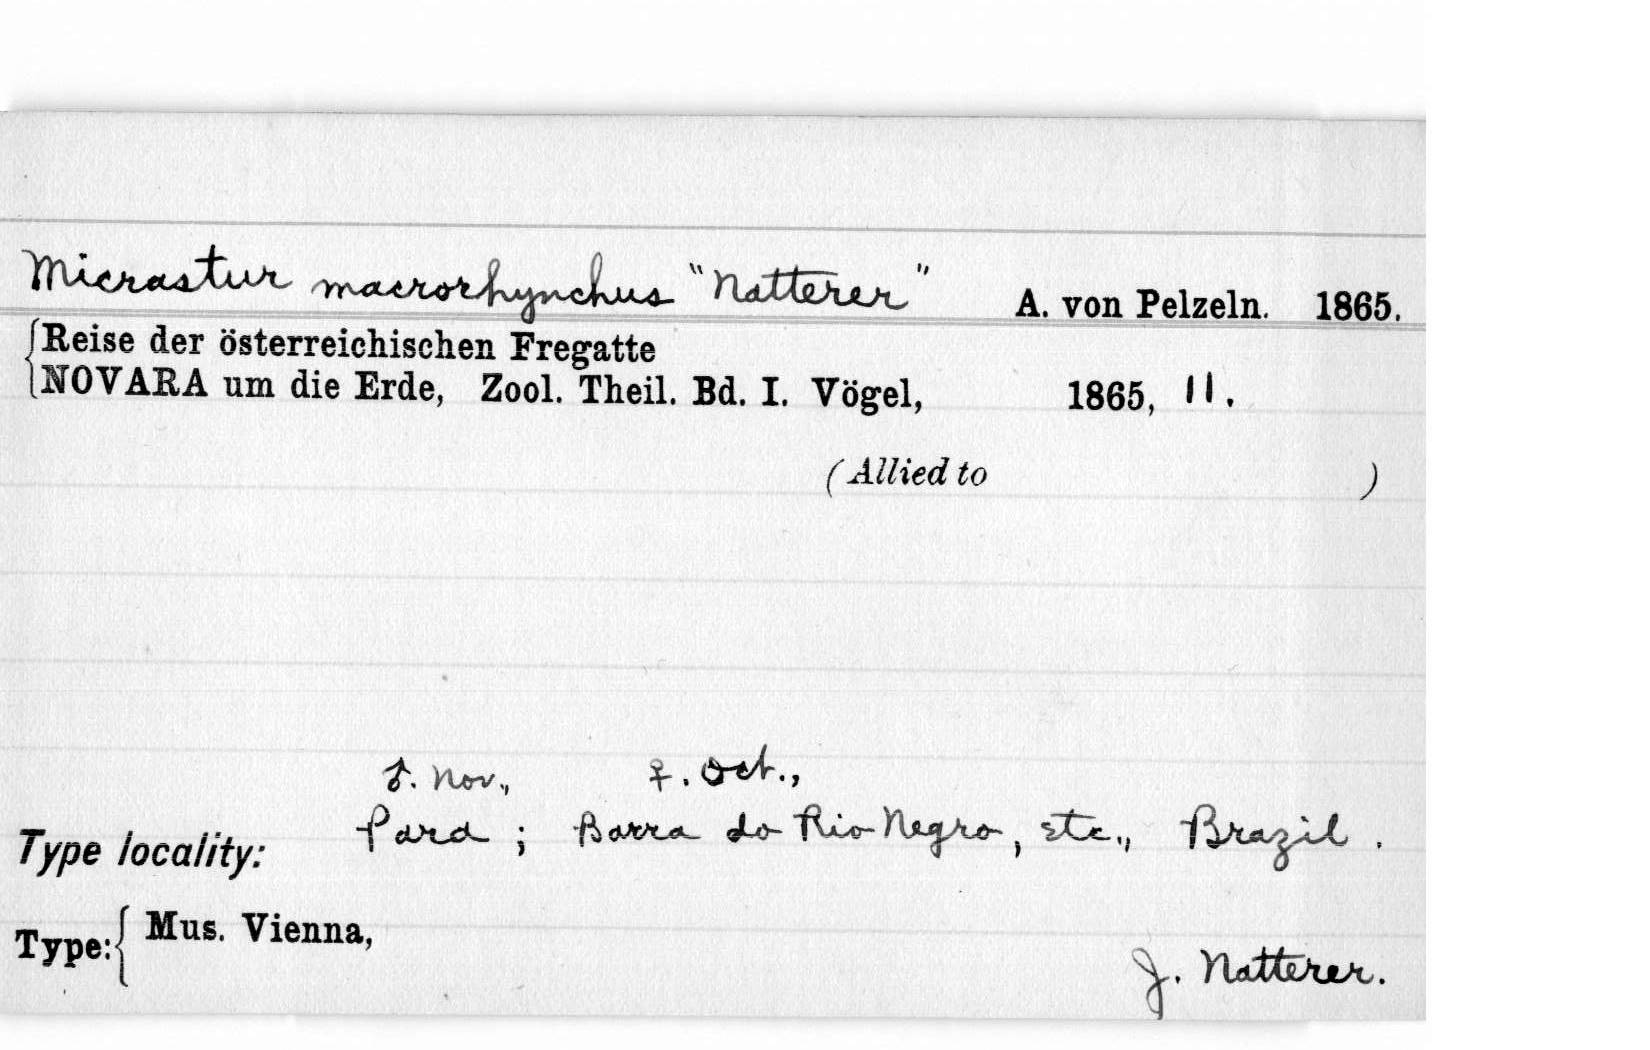 Micrastur macrorhynchus "Natterer" A. von Pelzeln. 1865.
Reise der österreichischen Fregatte
NOVARA um die Erde, Zool. Theil. Bd. I. Vögel, 1865, 11.
(Allied to )
♂. Nov., ♀. Oct.,
Type locality: Para ; Barra do Rio Negro, etc., Brazil .
Type: Mus. Vienna,
J. Natterer.